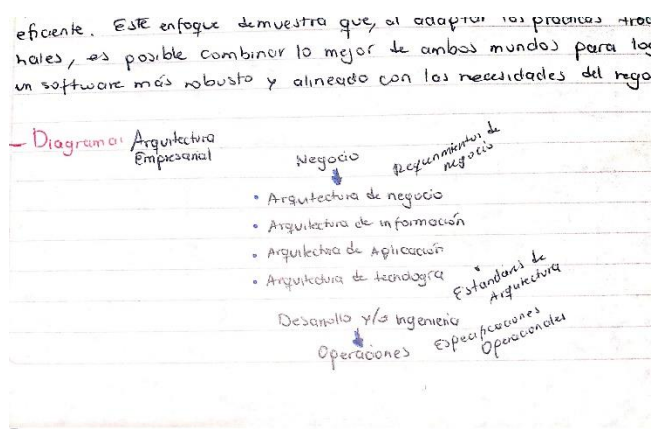 eficiente. Este enfoque demuestra que, al adaptar las prácticas trad
nales, es posible combinar lo mejor de ambos mundos para log
un software más robusto y alineado con las necesidades del nego
- Diagrama: Arquitectura
Empresarial
Negocio
Requerimientos de
negocio
• Arquitectura de negocio
• Arquitectura de información
• Arquitectura de Aplicación
• Arquitectura de tecnología
Estándares de
Arquitectura
Desarrollo y/o Ingeniería
Especificaciones
Operacionales
Operaciones